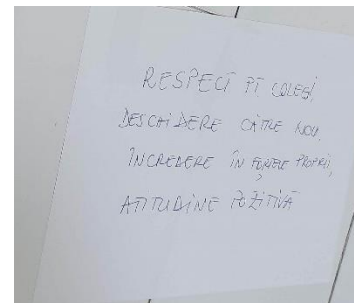 RESPECT PT. COLEGI,
DESCHIDERE CĂTRE NOU.
ÎNCREDERE ÎN FORȚELE PROPRII,
ATITUDINE POZITIVĂ